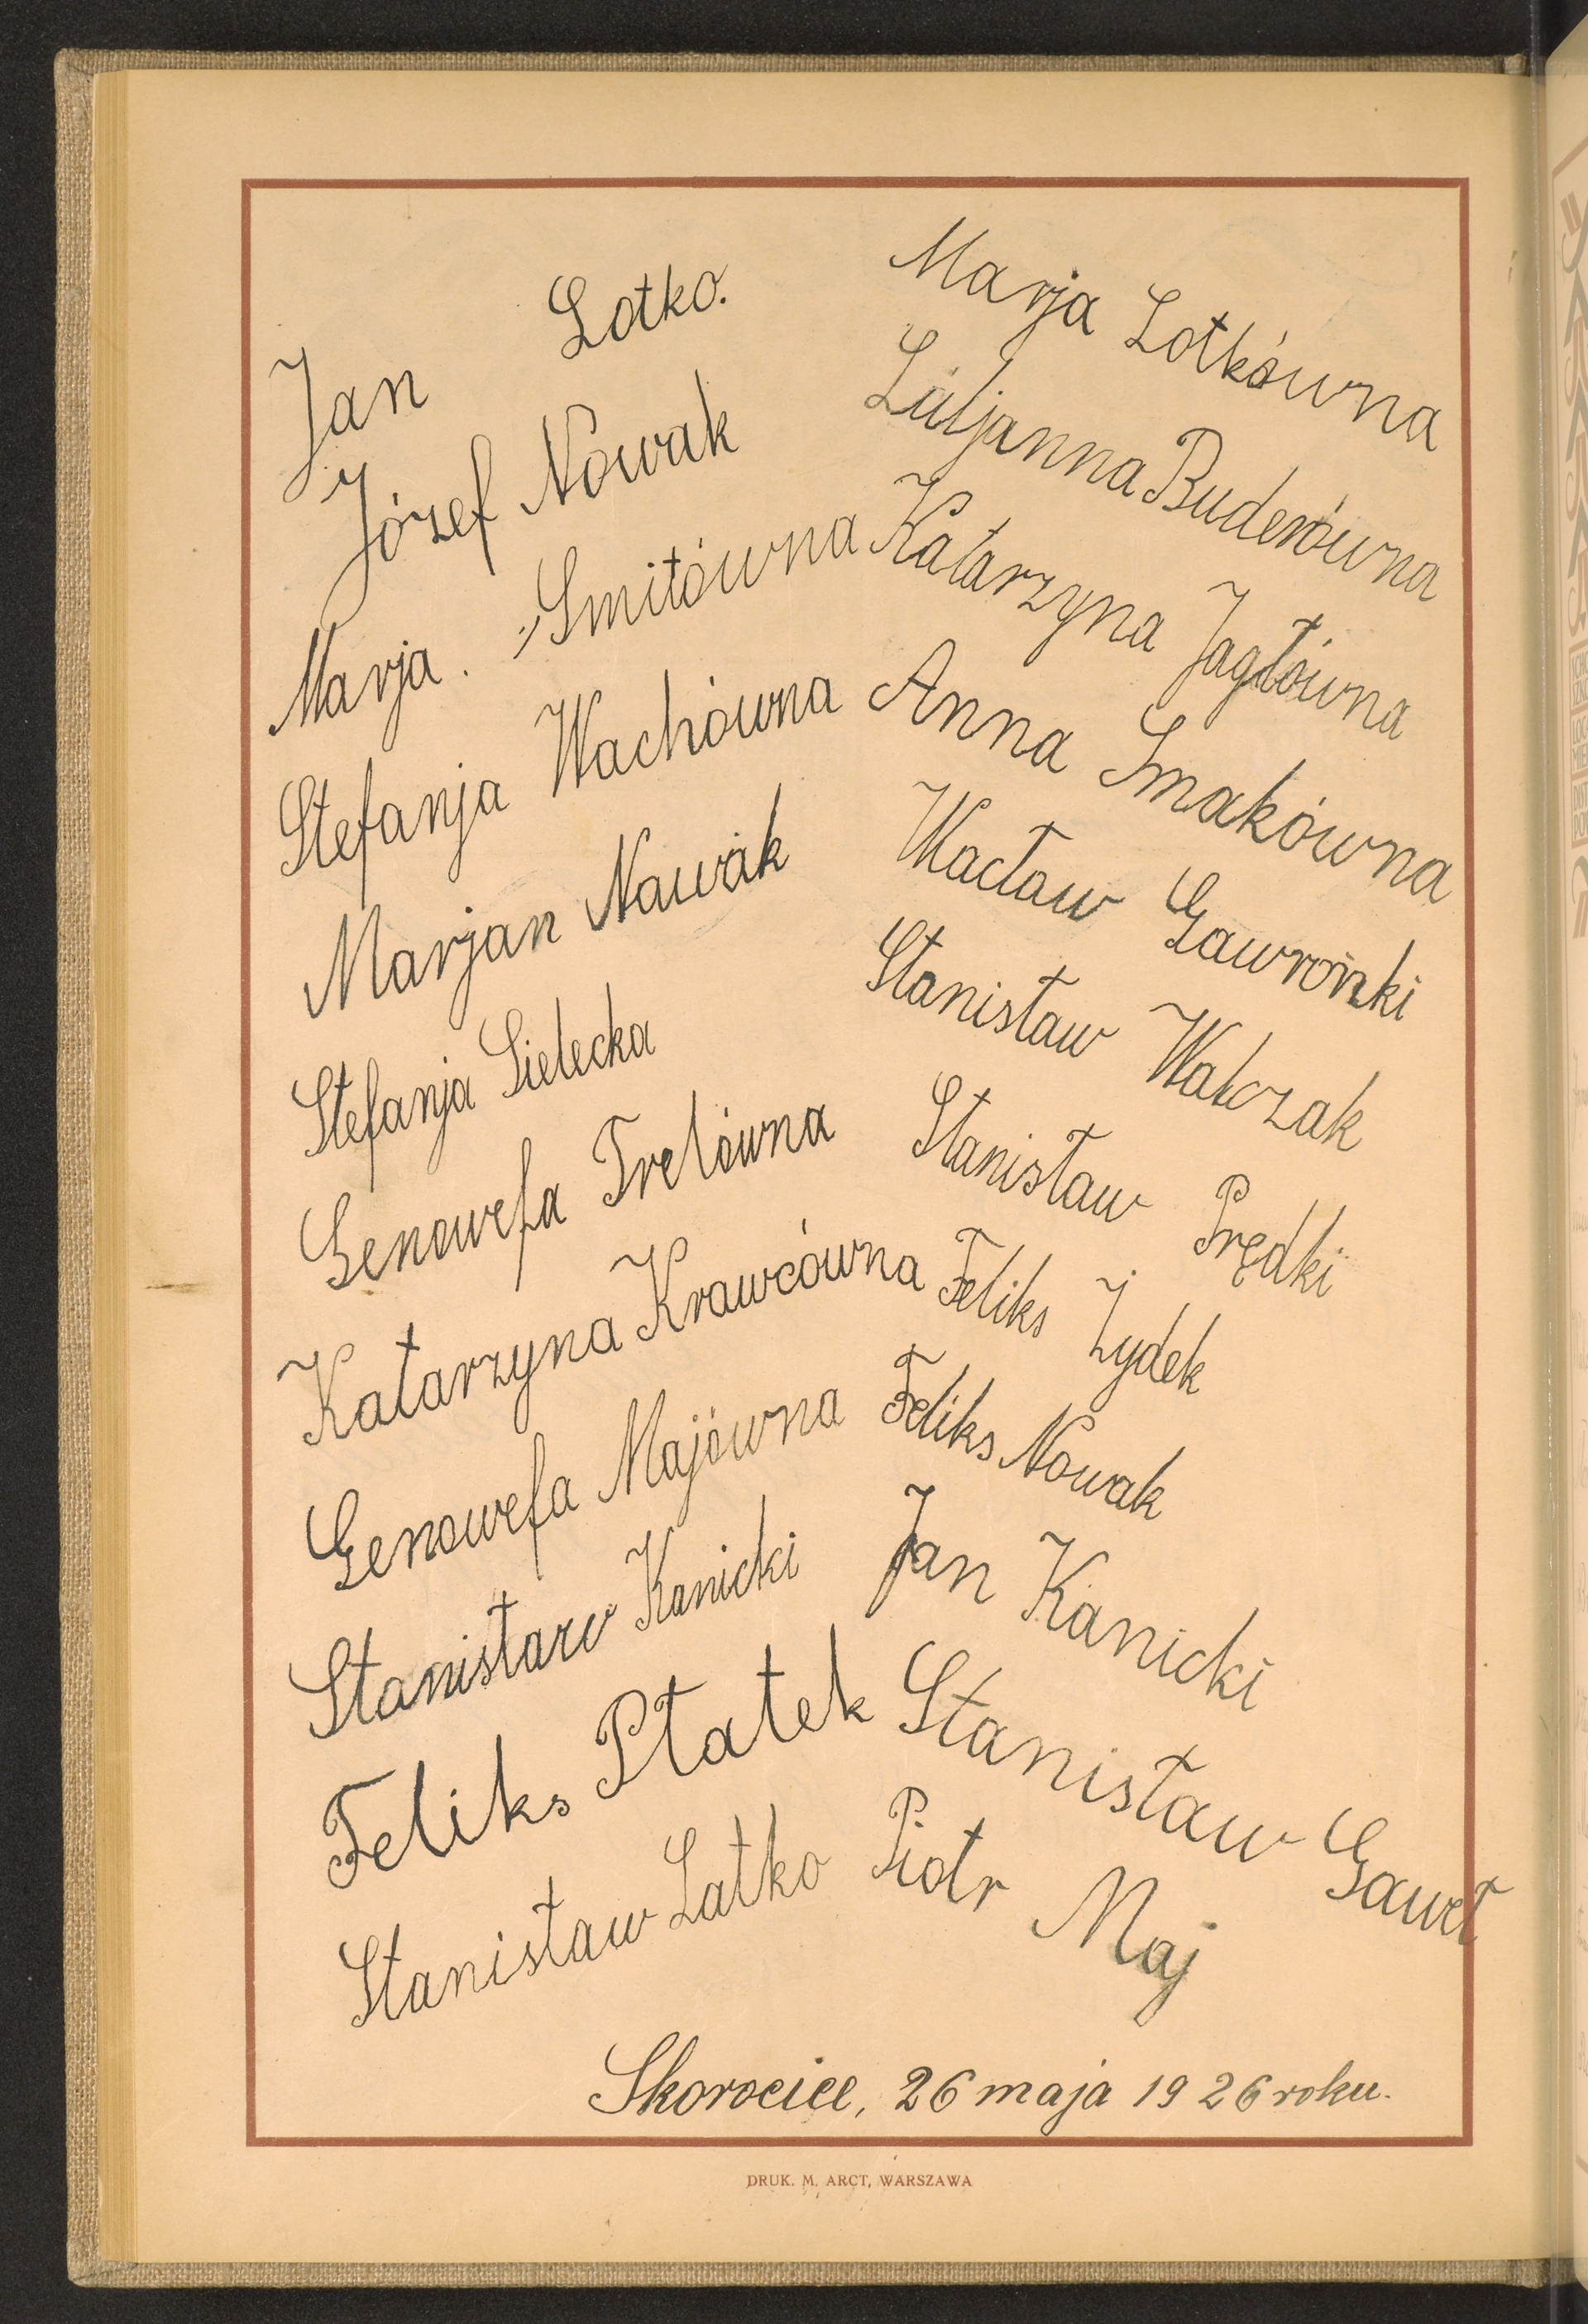 Jan Lotko.
Józef Nowak
Marja. Smitówna
Stefanja Wachówna
Marjan Nawak
Stefanja Sielecka
Genowefa Trelówna
Katarzyna Krawcówna
Genowefa Majówna
Stanisław Kanicki
Feliks Płatek
Stanisław Latko
Marja Lotkówna
Buderówna
Katarzyna Jagłówna
Anna Smakówna
Wacław Gawroński
Stanisław Walczak
Stanisław Prędki
Feliks Żydek
Feliks Nowak
Jan Kanicki
Stanisław Gaweł
Piotr Maj
Skorocice, 26 maja 1926 roku.
DRUK. M. ARCT, WARSZAWA